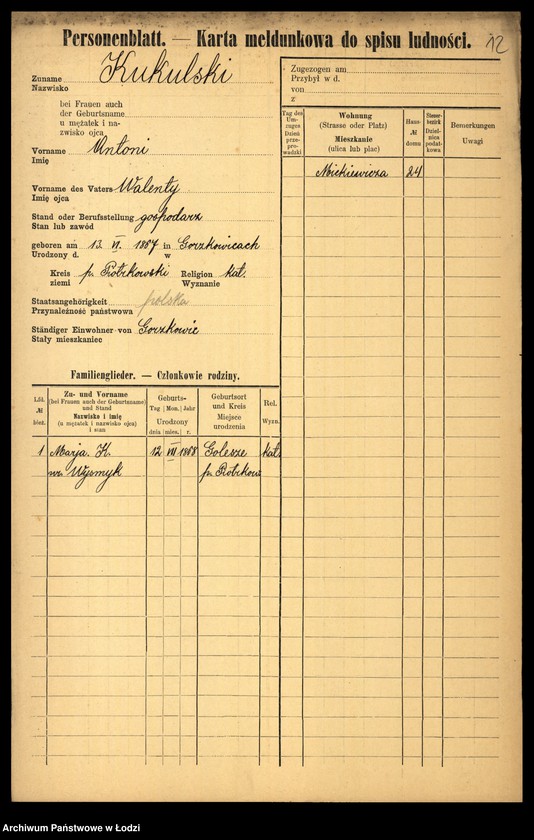 Personenblatt. — Karta meldunkowa do spisu ludności.
12
Zuname Kukulski
Nazwisko
bei Frauen auch
der Geburtsname
u mężatek i na-
zwisko ojca
Vorname Antoni
Imię
Vorname des Vaters Walenty
Imię ojca
Stand oder Berufsstellung gospodarz
Stan lub zawód
geboren am 13. VI. 1887 in Gorzkowicach
Urodzony d. w
Kreis p. Piotrkowski Religion kat.
ziemi Wyznanie
Staatsangehörigkeit polska
Przynależność państwowa
Ständiger Einwohner von Gorzkowic
Stały mieszkaniec
Familienglieder. — Członkowie rodziny.
Lfd.
№
bież.
Zu- und Vorname
(bei Frauen auch der Geburtsname)
und Stand
Nazwisko i imię
(u mężatek i nazwisko ojca)
i stan
Geburts-
Tag Mon. Jahr
Urodzony
dnia mies. r.
Geburtsort
und Kreis
Miejsce
urodzenia
Rel.
Wyzn.
1 Marja K. 12 VII 1888 Golesze kat.
Wyżmyk p. Piotrkow
Zugezogen am
Przybył w d.
von
z
Tag des
Um-
zuges
Dzień
prze-
pro-
wadzki
Wohnung
(Strasse oder Platz)
Mieszkanie
(ulica lub plac)
Haus-
№
domu
Steuer-
bezirk
Dziel-
nica
podat-
kowa
Bemerkungen
Uwagi
Mickiewicza 24
Archiwum Państwowe w Łodzi